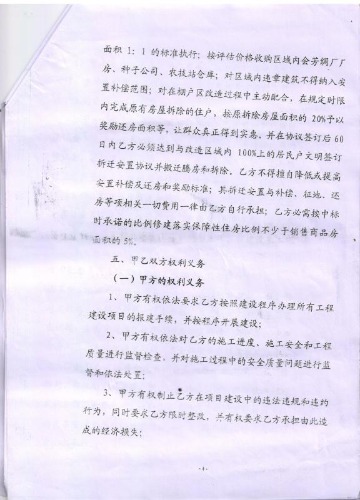 面积 1：1 的标准执行；按评估价格收购区域内会芳绸厂厂
房、种子公司、农技站仓库；对区域内违章建筑不得纳入安
置补偿范围；对在棚户区改造过程中主动配合，在规定时限
内完成原有房屋拆除的住户，按原拆除房屋面积的 20%予以
奖励还房面积等，让群众真正得到实惠。并在协议签订后 60
日内乙方必须达到与改造区域内 100%上的居民户文明签订
拆迁安置协议并搬迁腾房和拆除，乙方不得擅自降低或提高
安置补偿及还房和奖励标准；其拆迁安置与补偿、征地、还
房等项相关一切费用一律由乙方自行承担；乙方必需按中标
时承诺的比例修建落实保障性住房比例不少于销售商品房
面积的 5%.
五、甲乙双方权利义务
（一）甲方的权利义务
1、甲方有权依法要求乙方按照建设程序办理所有工程
建设项目的报建手续，并按程序开展建设；
2、甲方有权依法对乙方的施工进度、施工安全和工程
质量进行监督检查，并对施工过程中的安全质量问题进行监
督和依法处置；
3、甲方有权制止乙方在项目建设中的违法违规和违约
行为，同时要求乙方限时整改，并有权要求乙方承担由此造
成的经济损失；